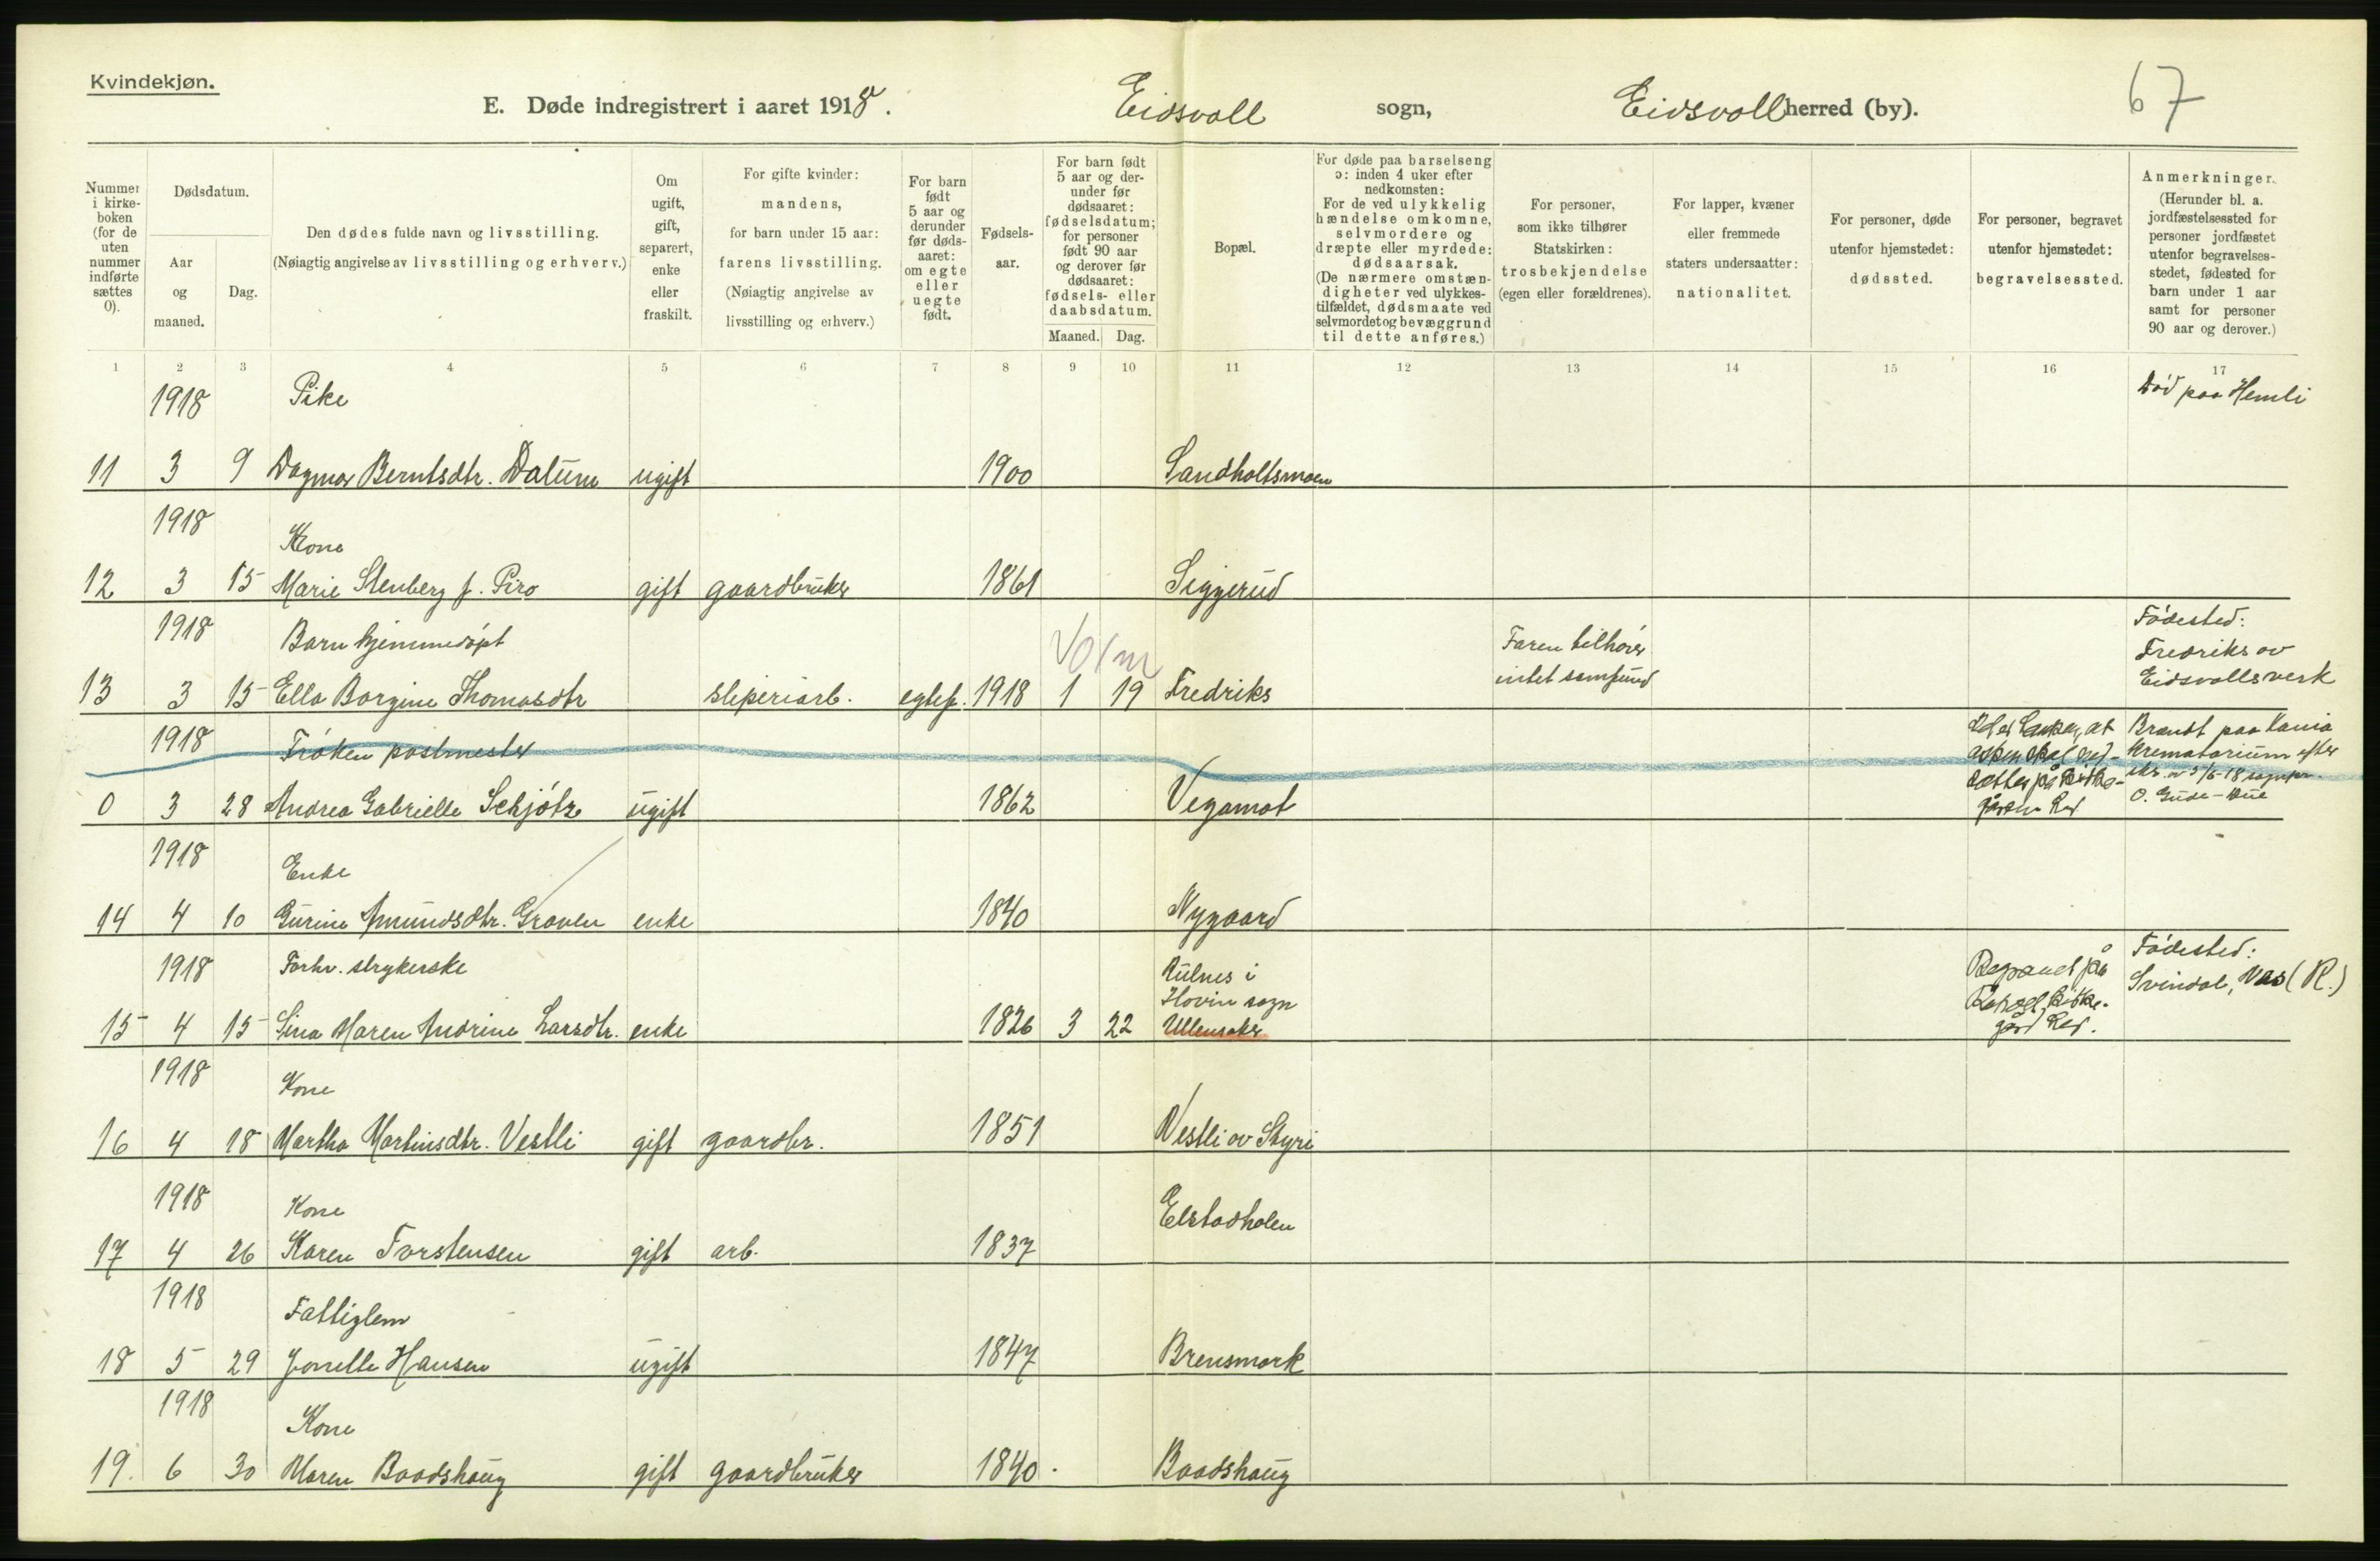 Kvindekjøn.
E. Døde indregistrert i aaret 1918. Eidsvoll sogn, Eidsvoll herred (by). 67
Nummer i kirkeboken (for de uten nummer indførte sættes 0).
Dødsdatum.
Aar og maaned.
Dag.
Den dødes fulde navn og livsstilling.
(Nøiagtig angivelse av livsstilling og erhverv.)
Om ugift, gift, separert, enke eller fraskilt.
For gifte kvinder: mandens, for barn under 15 aar: farens livsstilling. (Nøiagtig angivelse av livsstilling og erhverv.)
For barn født 5 aar og derunder før dødsaaret: om egte eller uegte født.
Fødselsaar.
For barn født 5 aar og derunder før dødsaaret: fødselsdatum; for personer født 90 aar og derover før dødsaaret: fødsels- eller daabsdatum.
Maaned. Dag.
Bopæl.
For døde paa barselseng ɔ: inden 4 uker efter nedkomsten: For de ved ulykkelig hændelse omkomne, selvmordere og dræpte eller myrdede: dødsaarsak. (De nærmere omstændigheter ved ulykkestilfældet, dødsmaate ved selvmordet og bevæggrund til dette anføres.)
For personer, som ikke tilhører Statskirken: trosbekjendelse (egen eller forældrenes).
For lapper, kvæner eller fremmede staters undersaatter: nationalitet.
For personer, døde utenfor hjemstedet: dødssted.
For personer, begravet utenfor hjemstedet: begravelsessted.
Anmerkninger. (Herunder bl. a. jordfæstelsessted for personer jordfæstet utenfor begravelsesstedet, fødested for barn under 1 aar samt for personer 90 aar og derover.)
1 2 3 4 5 6 7 8 9 10 11 12 13 14 15 16 17
1918 Pike Død paa Hemli
11 3 9 Dagmar Berntsdtr. Dalum ugift 1900 Sandholtsmoen
1918 Kone
12 3 15 Marie Stenberg f. Piro gift gaardbruker 1861 Siggerud
1918 Barn hjemmedøpt Faren tilhører intet samfund Fødested: Fredriks av Eidsvollsverk
Vorm
13 3 15 Ella Borgine Thomasdtr sliperiarb. egtef. 1918 1 19 Fredriks
1918 Frøken postmester Brændt paa Kania krematorium efter
0 3 28 Andrea Gabrielle Schjøtz ugift 1862 Vegamot
1918 Enke
14 4 10 Gurine Amundsdtr. Graven enke 1840 Nygaard
1918 Forhv. strykerske Fødested: Svindal, Vaas (R.)
Kulnes i
Hovin sogn
15 4 15 Sina Maren Andrine Larsdtr. enke 1826 3 22 Ullensaker
1918 Kone
16 4 18 Martha Martinsdtr. Vestli gift gaardbr. 1851 Vestli av Styri
1918 Kone Elstadholen
17 4 26 Karen Torstensen gift arb. 1837
1918 Fattiglem
18 5 29 Jonette Hansen ugift 1847 Brensmork
1918 Kone
19. 6 30 Maren Baadshaug gift gaardbruker 1840. Baadshaug